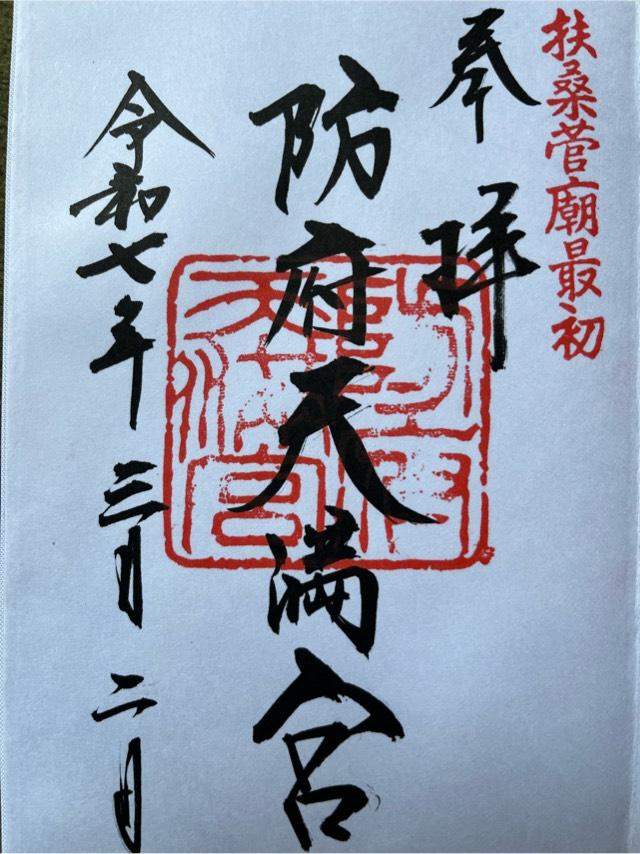 扶桑菅廟最初
奉拝
防府天満宮
令和七年三月二日